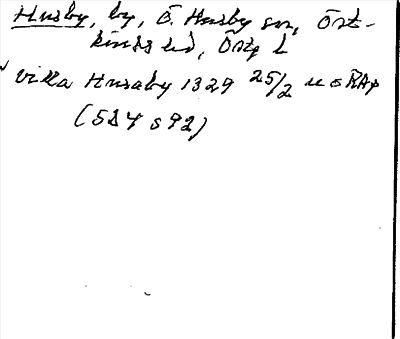 Husby, by, Ö. Husby sn, Öst-
kinds hd, Östg l
villa Husaby 1329 25/2 u o RAp
(SD 4 s 92)